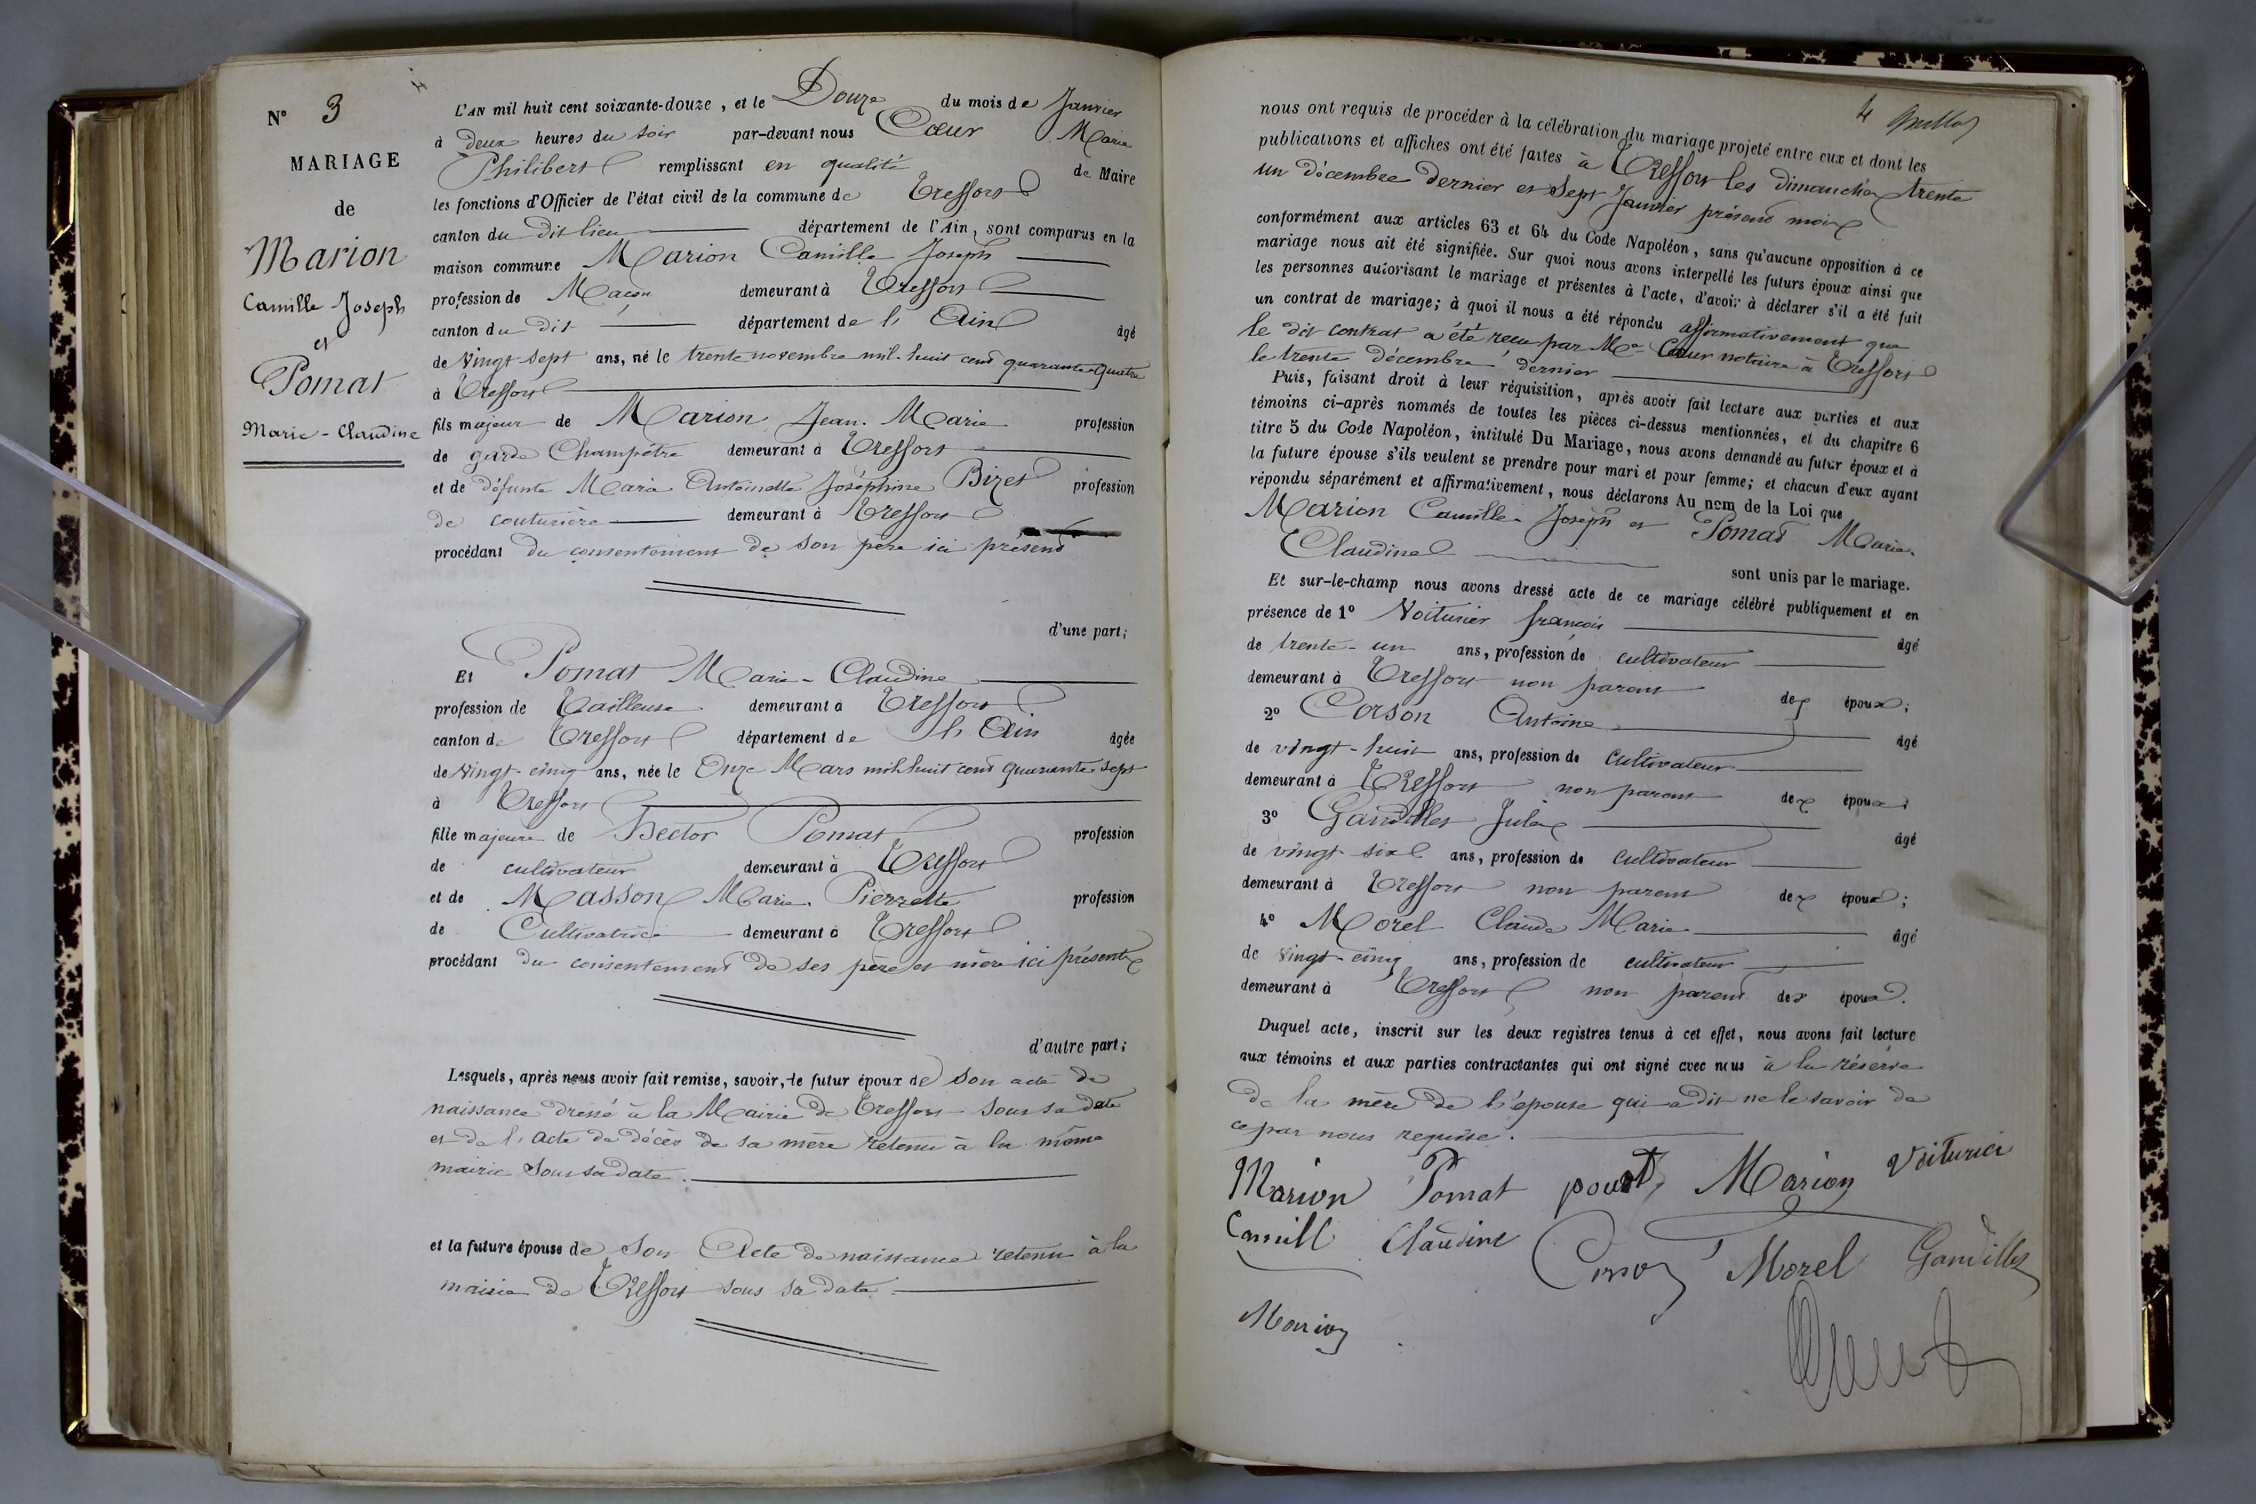 N° 3
MARIAGE
de
Marion
Camille Joseph
et
Pomat
Marie-Claudine
L'AN mil huit cent soixante-douze, et le Douze du mois de Janvier
à deux heures du soir par-devant nous Cœur Marie
Philibert remplissant en qualité de Maire
les fonctions d'Officier de l'état civil de la commune de Treffort
canton du dit lieu département de l'Ain, sont comparus en la
maison commune Marion Camille Joseph
profession de Maçon demeurant à Treffort
canton du dit département de l'Ain âgé
de vingt sept ans, né le trente novembre mil huit cent quarante-quatre
à Treffort
fils majeur de Marion Jean-Marie profession
de garde Champêtre demeurant à Treffort
et de défunte Marie Antoinette Joséphine Bizet profession
de couturière demeurant à Treffort
procédant du consentement de son père ici présent
d'une part;
Et Pomat Marie-Claudine
profession de Tailleuse demeurant à Treffort
canton de Treffort département de l'Ain âgée
de vingt-cinq ans, née le Onze Mars mil huit cent quarante sept
à Treffort
fille majeure de Hector Pomat profession
de cultivateur demeurant à Treffort
et de Masson Marie Pierrette profession
de Cultivatrice demeurant à Treffort
procédant du consentement de ses père et mère ici présents
d'autre part;
Lesquels, après nous avoir fait remise, savoir, le futur époux de son acte de
naissance dressé à la Mairie de Treffort sous sa date
et de l'acte de décès de sa mère retenu à la même
mairie sous sa date.
et la future épouse de son Acte de naissance retenu à la
mairie de Treffort sous sa date.
4
nous ont requis de procéder à la célébration du mariage projeté entre eux et dont les
publications et affiches ont été faites à Treffort les dimanches trente
un décembre dernier et sept Janvier présent mois
conformément aux articles 63 et 64 du Code Napoléon, sans qu'aucune opposition à ce
mariage nous ait été signifiée. Sur quoi nous avons interpellé les futurs époux ainsi que
les personnes autorisant le mariage et présentes à l'acte, d'avoir à déclarer s'il a été fait
un contrat de mariage; à quoi il nous a été répondu affirmativement que
le dit contrat a été reçu par Me Cœur notaire à Treffort
le trente décembre dernier
Puis, faisant droit à leur réquisition, après avoir fait lecture aux parties et aux
témoins ci-après nommés de toutes les pièces ci-dessus mentionnées, et du chapitre 6
titre 5 du Code Napoléon, intitulé Du Mariage, nous avons demandé au futur époux et à
la future épouse s'ils veulent se prendre pour mari et pour femme; et chacun d'eux ayant
répondu séparément et affirmativement, nous déclarons Au nom de la Loi que
Marion Camille Joseph et Pomat Marie-
Claudine
sont unis par le mariage.
Et sur-le-champ nous avons dressé acte de ce mariage célébré publiquement et en
présence de 1° Voiturier françois âgé
de trente-un ans, profession de cultivateur
demeurant à Treffort non parent des époux;
2° Corson Antoine âgé
de vingt-huit ans, profession de cultivateur
demeurant à Treffort non parent des époux;
3° Gandillet Jules âgé
de vingt six ans, profession de cultivateur
demeurant à Treffort non parent des époux;
4° Morel Claude Marie âgé
de vingt-cinq ans, profession de cultivateur
demeurant à Treffort non parent des époux.
Duquel acte, inscrit sur les deux registres tenus à cet effet, nous avons fait lecture
aux témoins et aux parties contractantes qui ont signé avec nous à la réserve
de la mère de l'épouse qui a dit ne le savoir de
ce par nous requise.
Marion Pomat Marion Voiturier
Camill Claudine Morel Gandillet
Marion